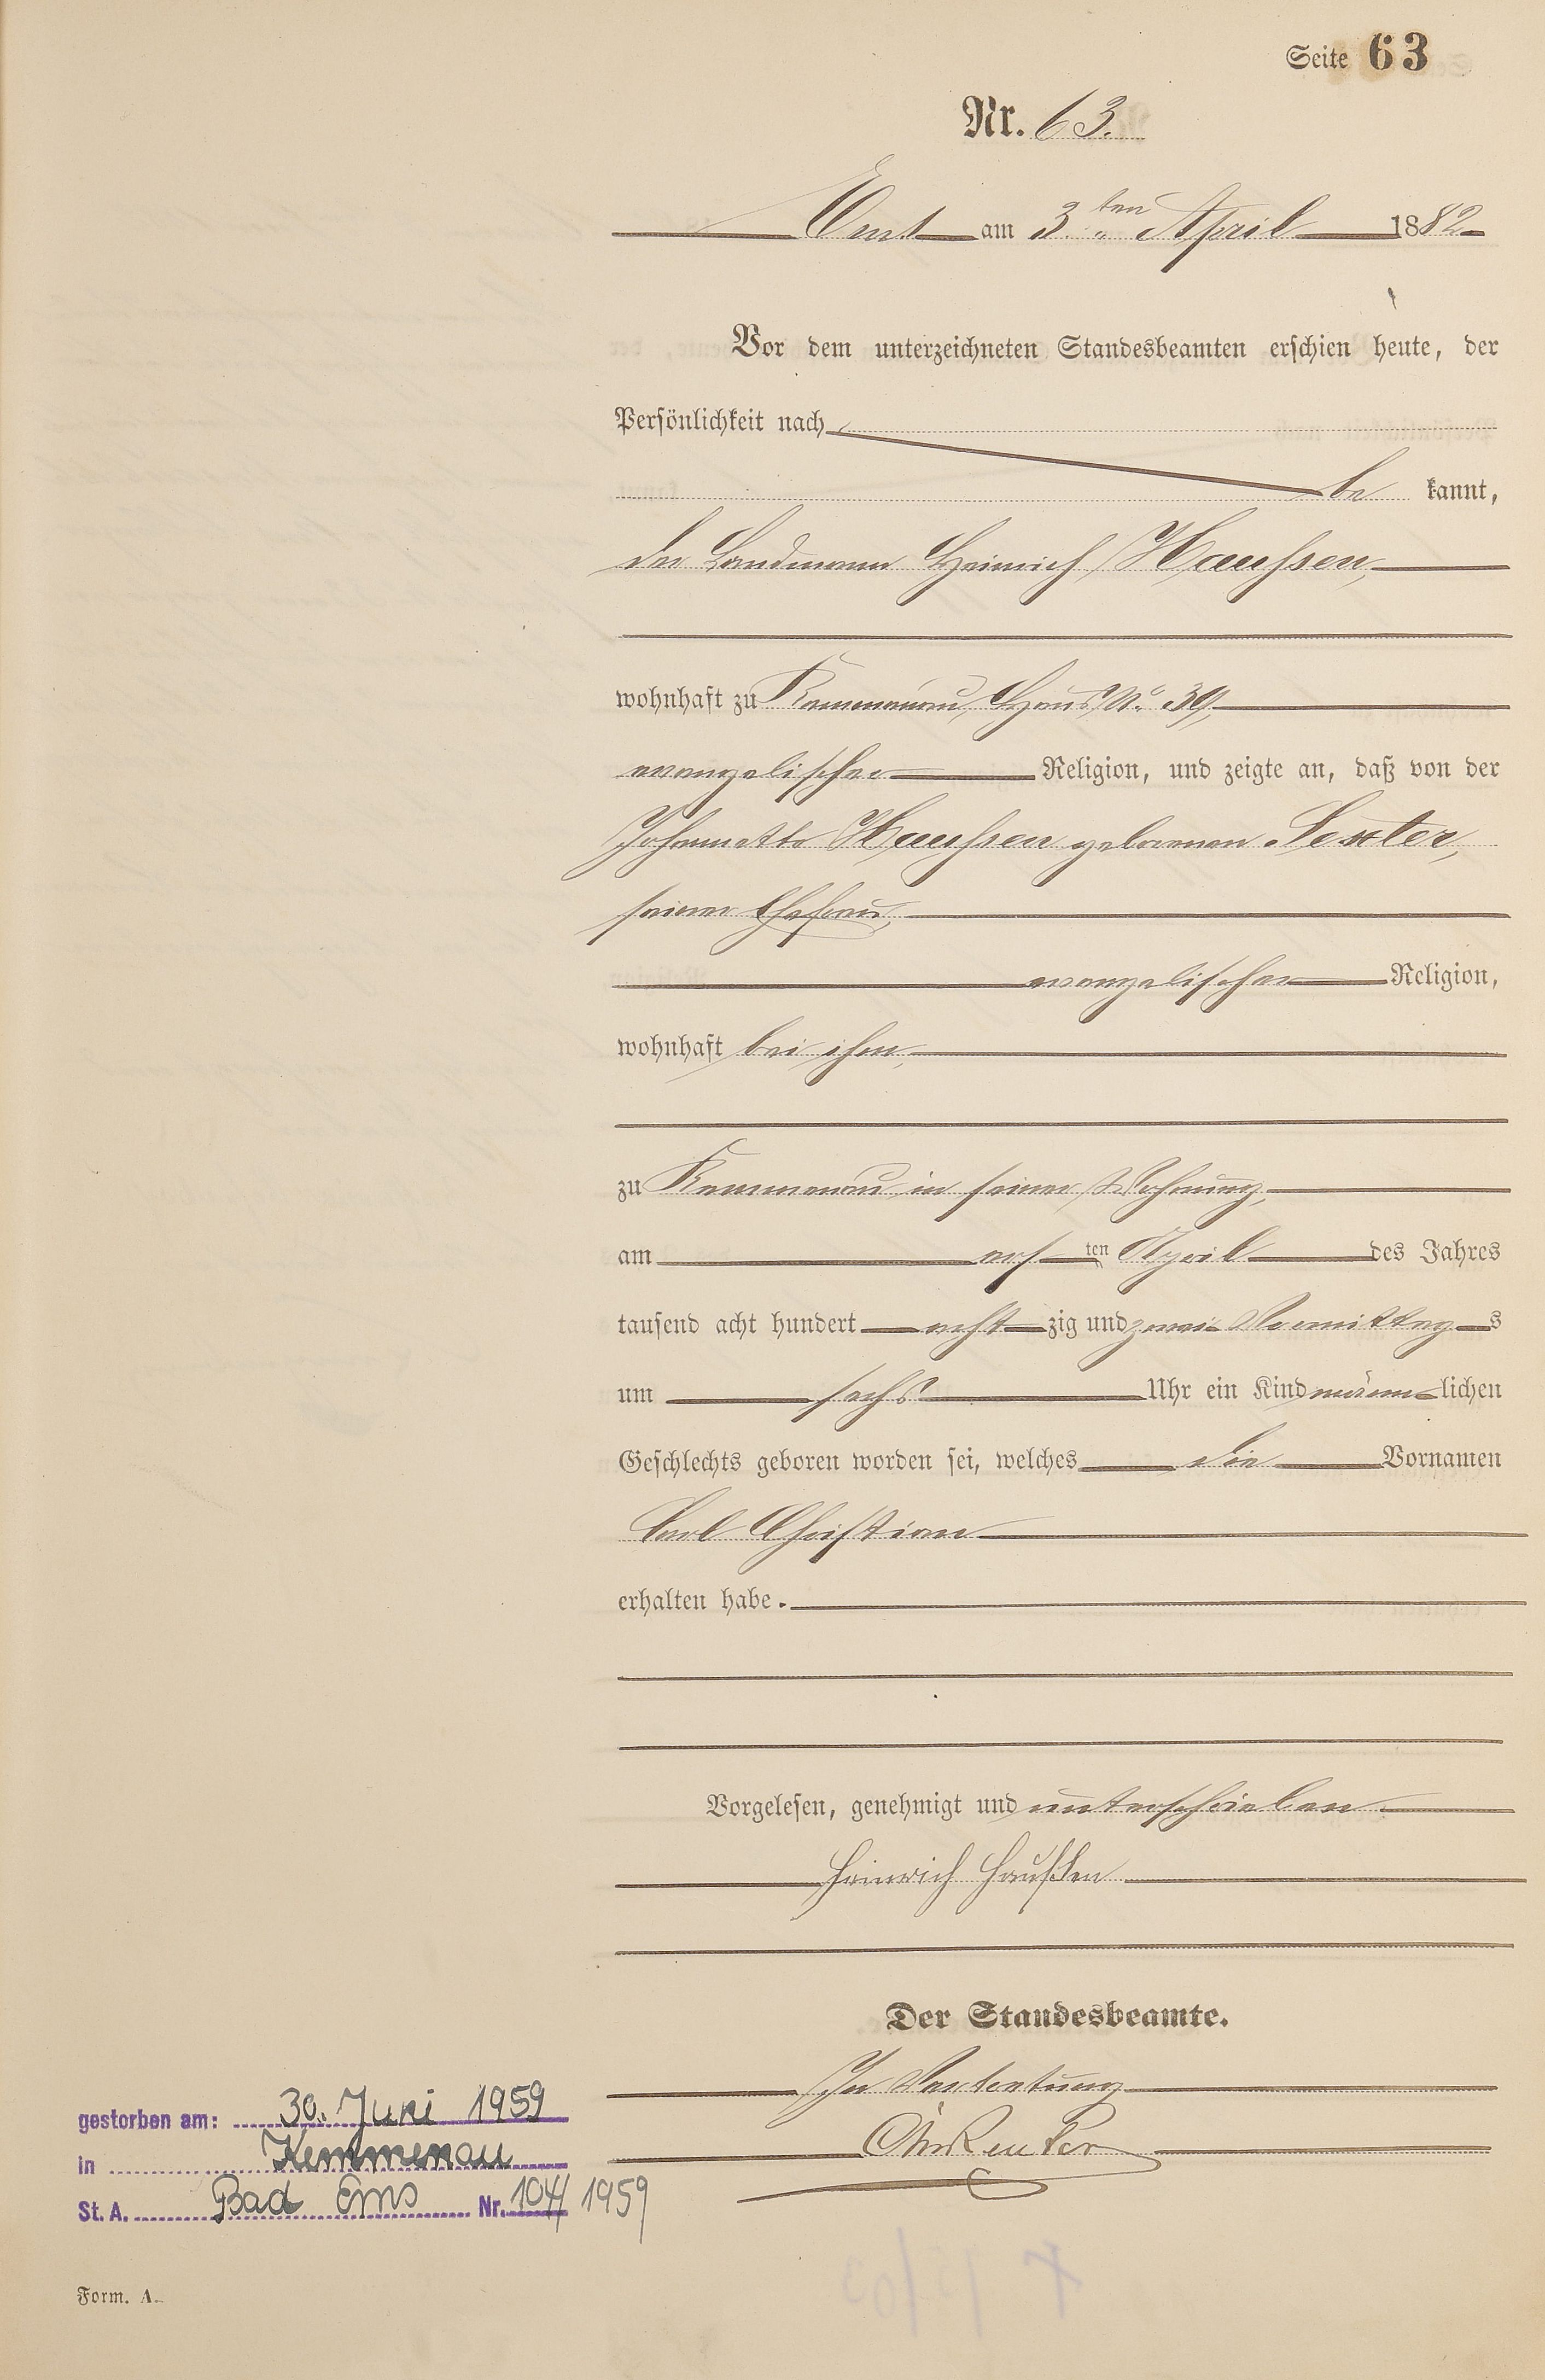 Seite 63
Nr. 63.
Ems am 3.ten April 1882
Vor dem unterzeichneten Standesbeamten erschien heute, der
Persönlichkeit nach
be kannt,
der Landmann Heinrich Haußen,
wohnhaft zu Kemmenau, Haus No. 39,
evangelischer Religion, und zeigte an, daß von der
Johannette Haußen geborenen
seiner Ehefrau,
evangelischer Religion,
wohnhaft bei ihm,
zu Kemmenau in seiner Wohnung,
am ers ten April des Jahres
tausend acht hundert acht zig und zwei Vormittag s
um sechs Uhr ein Kind männ lichen
Geschlechts geboren worden sei, welches die Vornamen
Carl Christian
erhalten habe.
Vorgelesen, genehmigt und unterschrieben
Heinrich Haußen
Der Standesbeamte.
In Vertretung
gestorben am: 30. Juni 1959
in Kemmenau
St. A. Bad Ems Nr. 104/1959
Form. A.